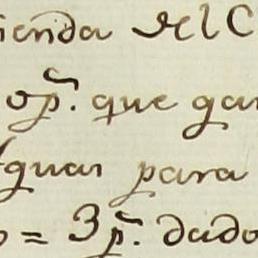 ienda del C
op̃. que gan
guas para
o = 3p̃. dado